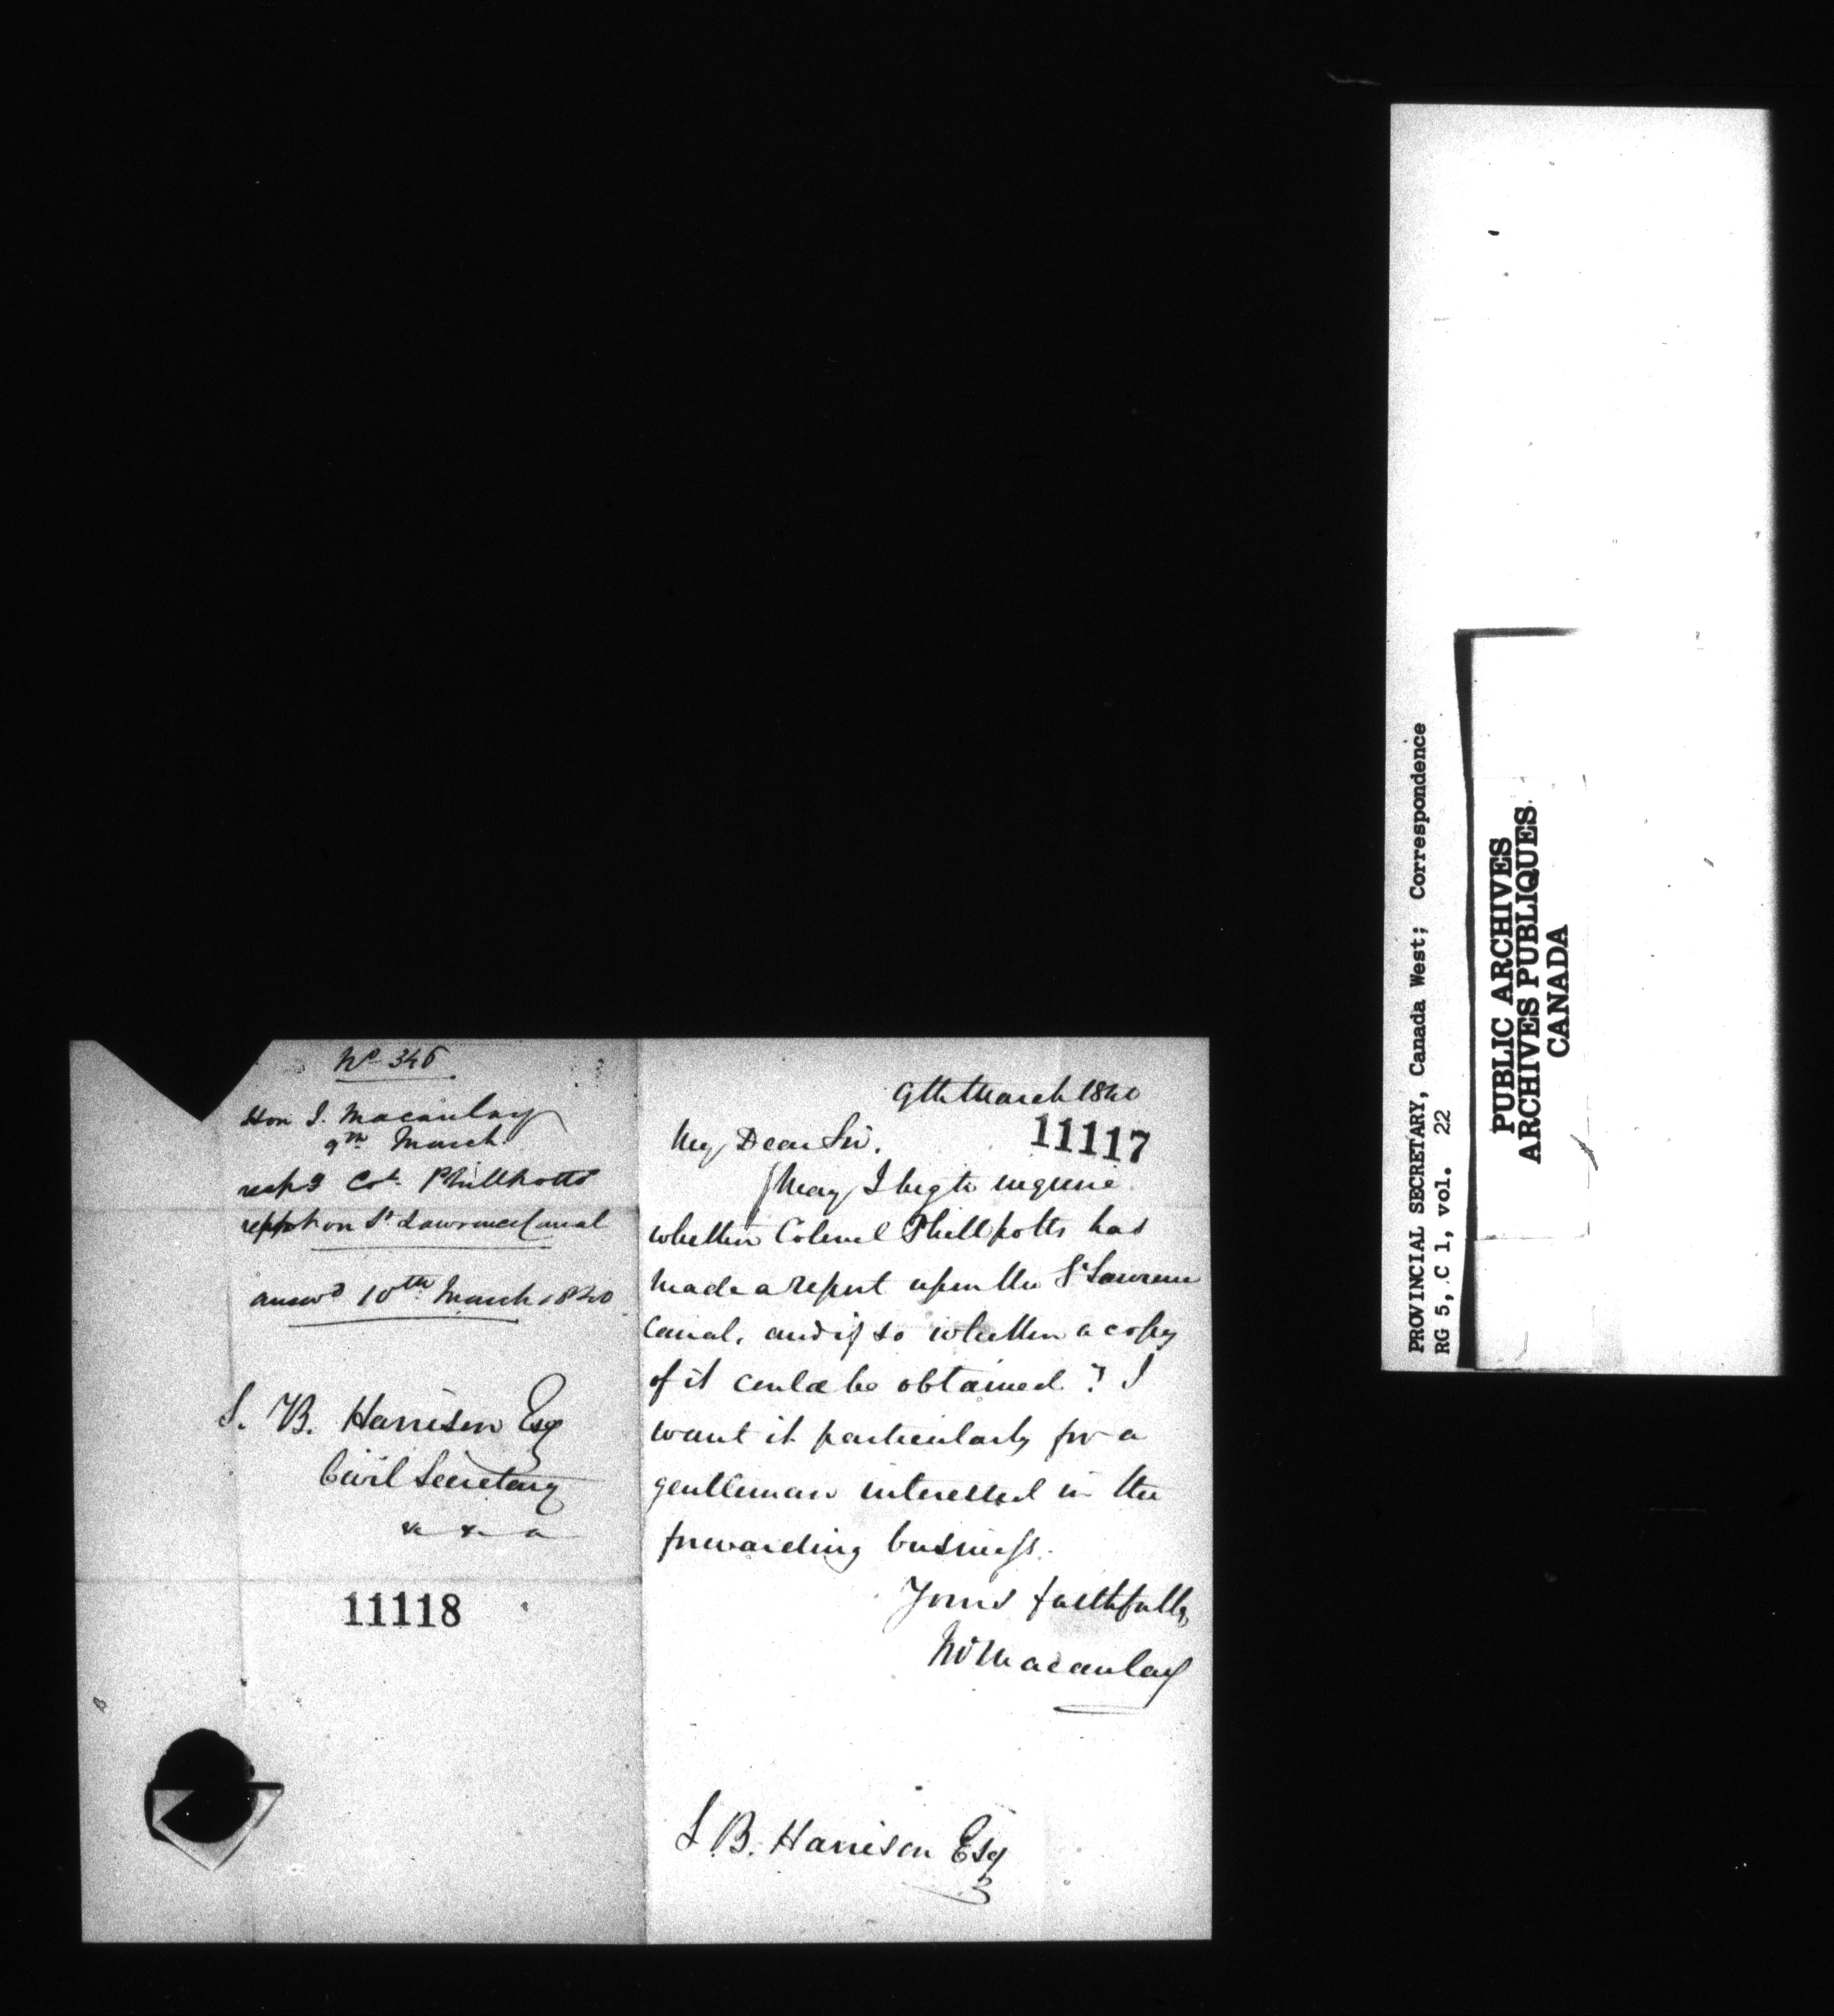 No 346
Hon J. Macaulay
9th March
respg Col. Phillpotts
report on St Lawrence Canal
answd 10th March 1840
S. B. Harrison Esq
Civil Secretary
&c &c &c
11118
9th March 1840
11117
My Dear Sir.
May I beg to inquire
whether Colonel Phillpotts has
made a report upon the St Lawrence
Canal, and if so whether a copy
of it could be obtained? I
want it particularly for a
gentleman interested in the
forwarding business.
Yours faithfully
Macaulay
S. B. Harrison Esq
PROVINCIAL SECRETARY, Canada West; Correspondence
RG 5, C 1, vol. 22
PUBLIC ARCHIVES
ARCHIVES PUBLIQUES
CANADA